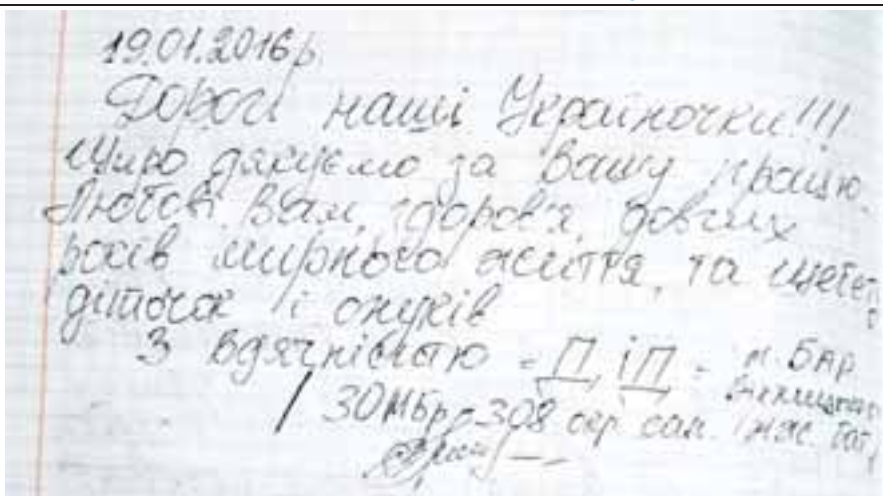 19.01.2016р.
Дорогі наші Україночки!!!
Щиро дякуємо за Вашу працю.
Любові Вам, здоров'я, довгих
років мирного життя, та
діточок і онуків
З вдячністю = П і П = м. Бар
30МБр - 308 окр. сап.